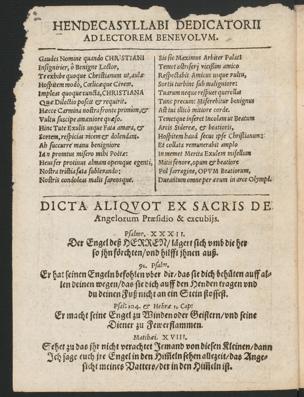 HENDECASYLLABI DEDICATORII
AD LECTOREM BENEVOLVM.
Gaudes Nomine quando CHRISTIANI
Insignirier, ô Benigne Lector,
Te exhibe quoque Christianum ut, aulæ
Hospitem modò, Cælicæque Cirem,
Impleat quoque cuncta, CHRISTIANA
Quæ Dilectio poscit & requirit.
Hæcce Carmina nostra fronte primùm, &
Vultu suscipe amaniore quæso.
Hinc Tute Exulis usque Fata amara, &
Sortem, respicias vicem & dolendam.
Ah succurre manu benigniore
Iā promtus misero mihi Poëtæ:
Heu fer protinus almam opemque egenti,
Nostra tristia fata sublevando;
Nostris condoleas malis figneoque.
Sis sic Maximus Arbiter Polatî
Temet astriferj vicissim amico
Respectabit Amicus usque vultu,
Sortis turbine sub maligniore:
Tuarum neque respuet querelas
Tunc precum: Miserebitur benignus
Ast tui illicò mitiore corde.
Temetque inseret Incolam ut Beatum
Arcis Sidereæ, & beatioris,
Hospitem haud secus ipse Christianum;
Et collata remunerabit amplo
In memet Merita Exulem misellum
Mitis fenore, opum & beatiore
Pol farragine, OPVM Beatiorum,
Duratum omne per ævum in arce Olympi.
DICTA ALIQVOT EX SACRIS DE
Angelorum Præsidio & excubijs.
Psalm, XXXII.
Der Engel deß HERREN / lägert sich vmb die her
so jhn förchten / vnd hilfft jhnen auß.
91. Psalm.
Er hat seinen Engeln befohlen vber dir / das sie dich behüten auff al-
len deinen wegen / das sie dich auff den Henden tragen vnd
du deinen Fuß nicht an ein Stein stossest.
Psal: 104. & Hebræ 1. Cap:
Er macht seine Engel zu Winden oder Geistern / vnd seine
Diener zu Fewerflammen.
Matthæi. XVIII.
Sehet zu das jhr nicht verachtet Jemand von diesen Kleinen / dann
Ich sage euch jre Engel in den Him̃eln sehen allezeit / das Ange-
sicht meines Vatters / der in den Him̃eln ist.